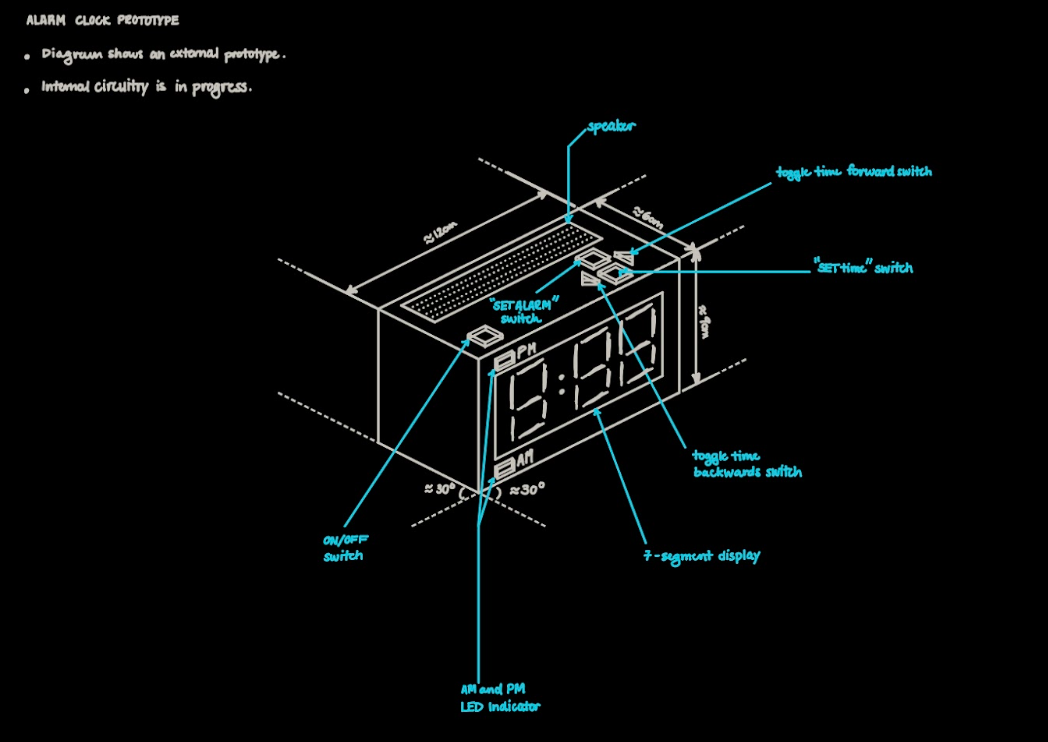 ALARM CLOCK PROTOTYPE
• Diagram shows an external prototype.
• Internal circuitry is in progress.
speaker
toggle time forward switch
≈12cm
≈6cm
"SET time" switch
"SET ALARM"
switch
≈9cm
PM
AM
toggle time
backwards switch
≈30°
≈30°
ON/OFF
switch
7-segment display
AM and PM
LED Indicator